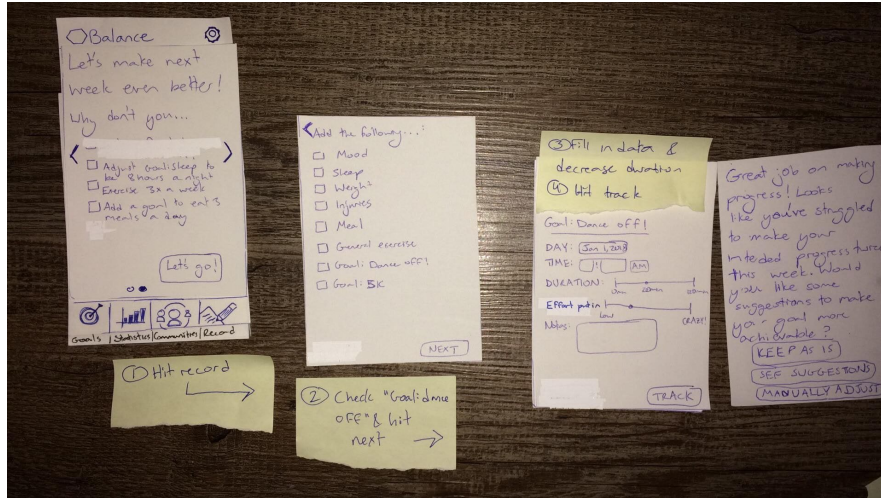 Balance
Let's make next
week even better!
Why don't you...
Adjust Goal: Sleep to
be 8 hours a night
Exercise 3x a week
Add a goal to eat 3
meals a day
Let's go!
Goals | Statistics | Communities | Record
① Hit record
Add the following...:
Mood
Sleep
Weight
Injuries
Meal
General exercise
Goal: Dance off!
Goal: 5K
NEXT
② Check "Goal: dance
OFF" & hit
next
③ Fill in data &
decrease duration
④ Hit track
Goal: Dance off!
DAY: Jan 1, 2018
TIME: : AM
DURATION:
Effort put in
low
CRAZY!
Notes:
TRACK
Great job on making
progress! Looks
like you've struggled
to make your
inteded progress twice
this week. Would
you like some
suggestions to make
your goal more
achievable?
KEEP AS IS
SEE SUGGESTIONS
MANUALLY ADJUST